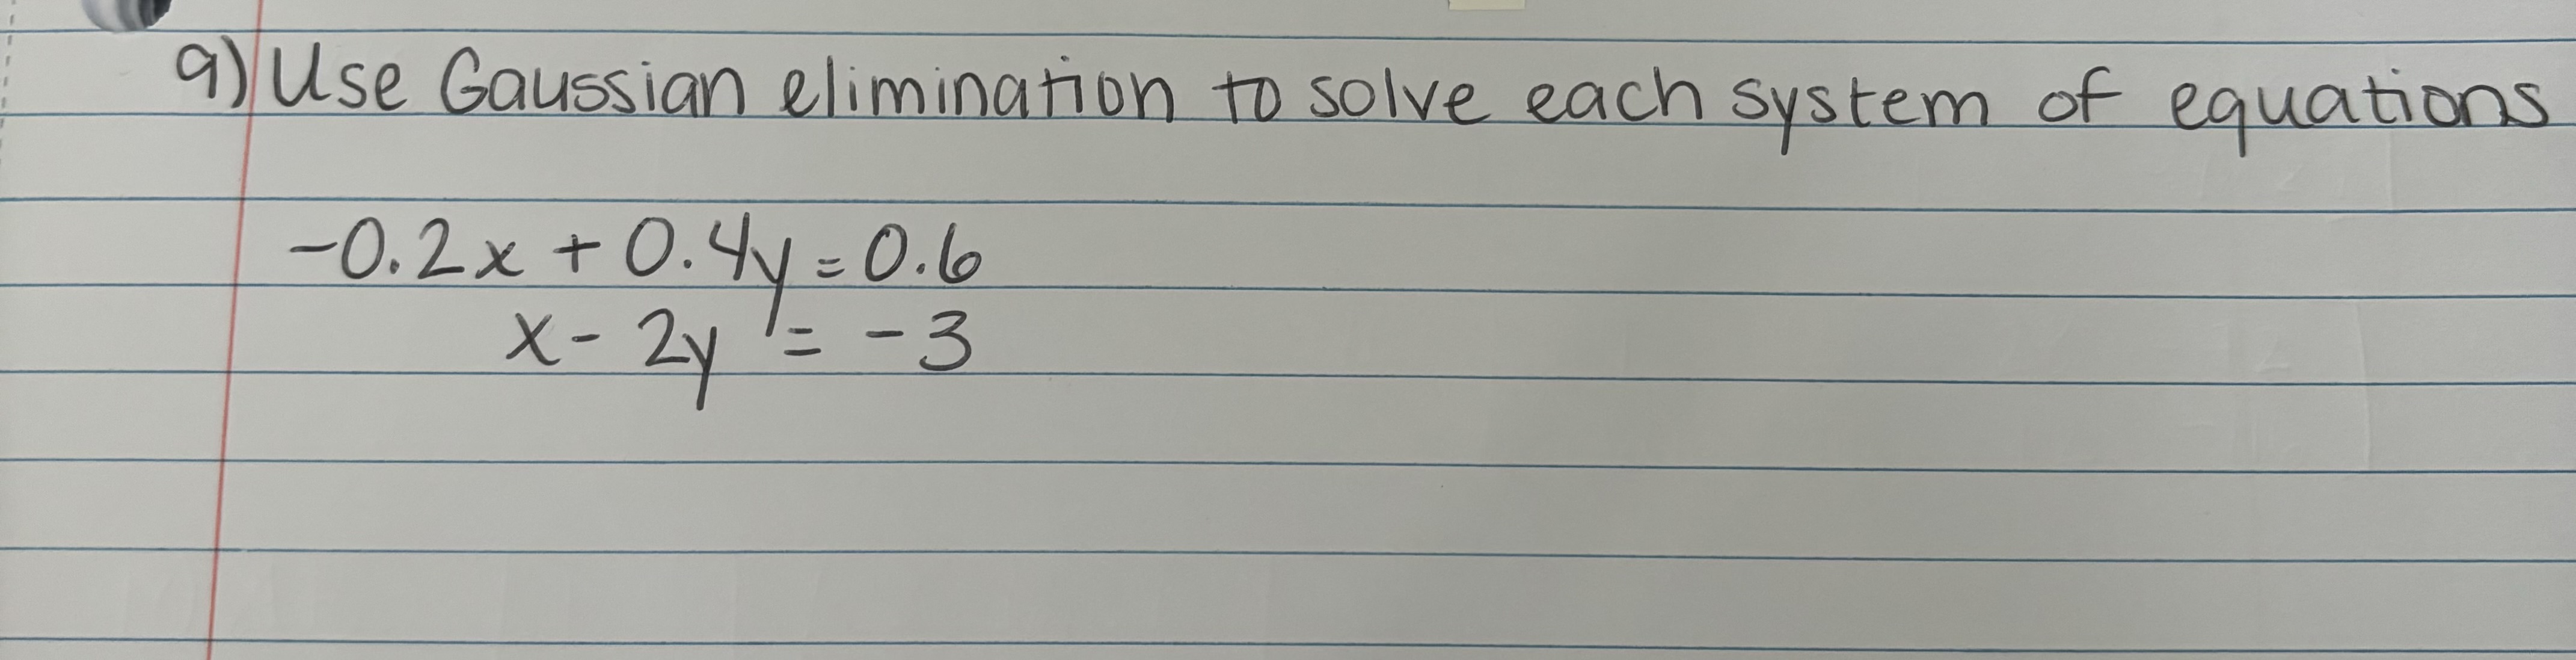 9) Use Gaussian elimination to solve each system of equations
-0.2x + 0.4y = 0.6
x - 2y = -3